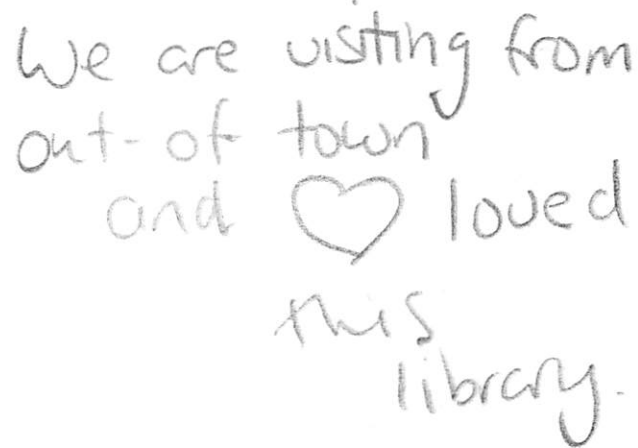 We are visting from
out-of town
and ♡ loved
this
library.